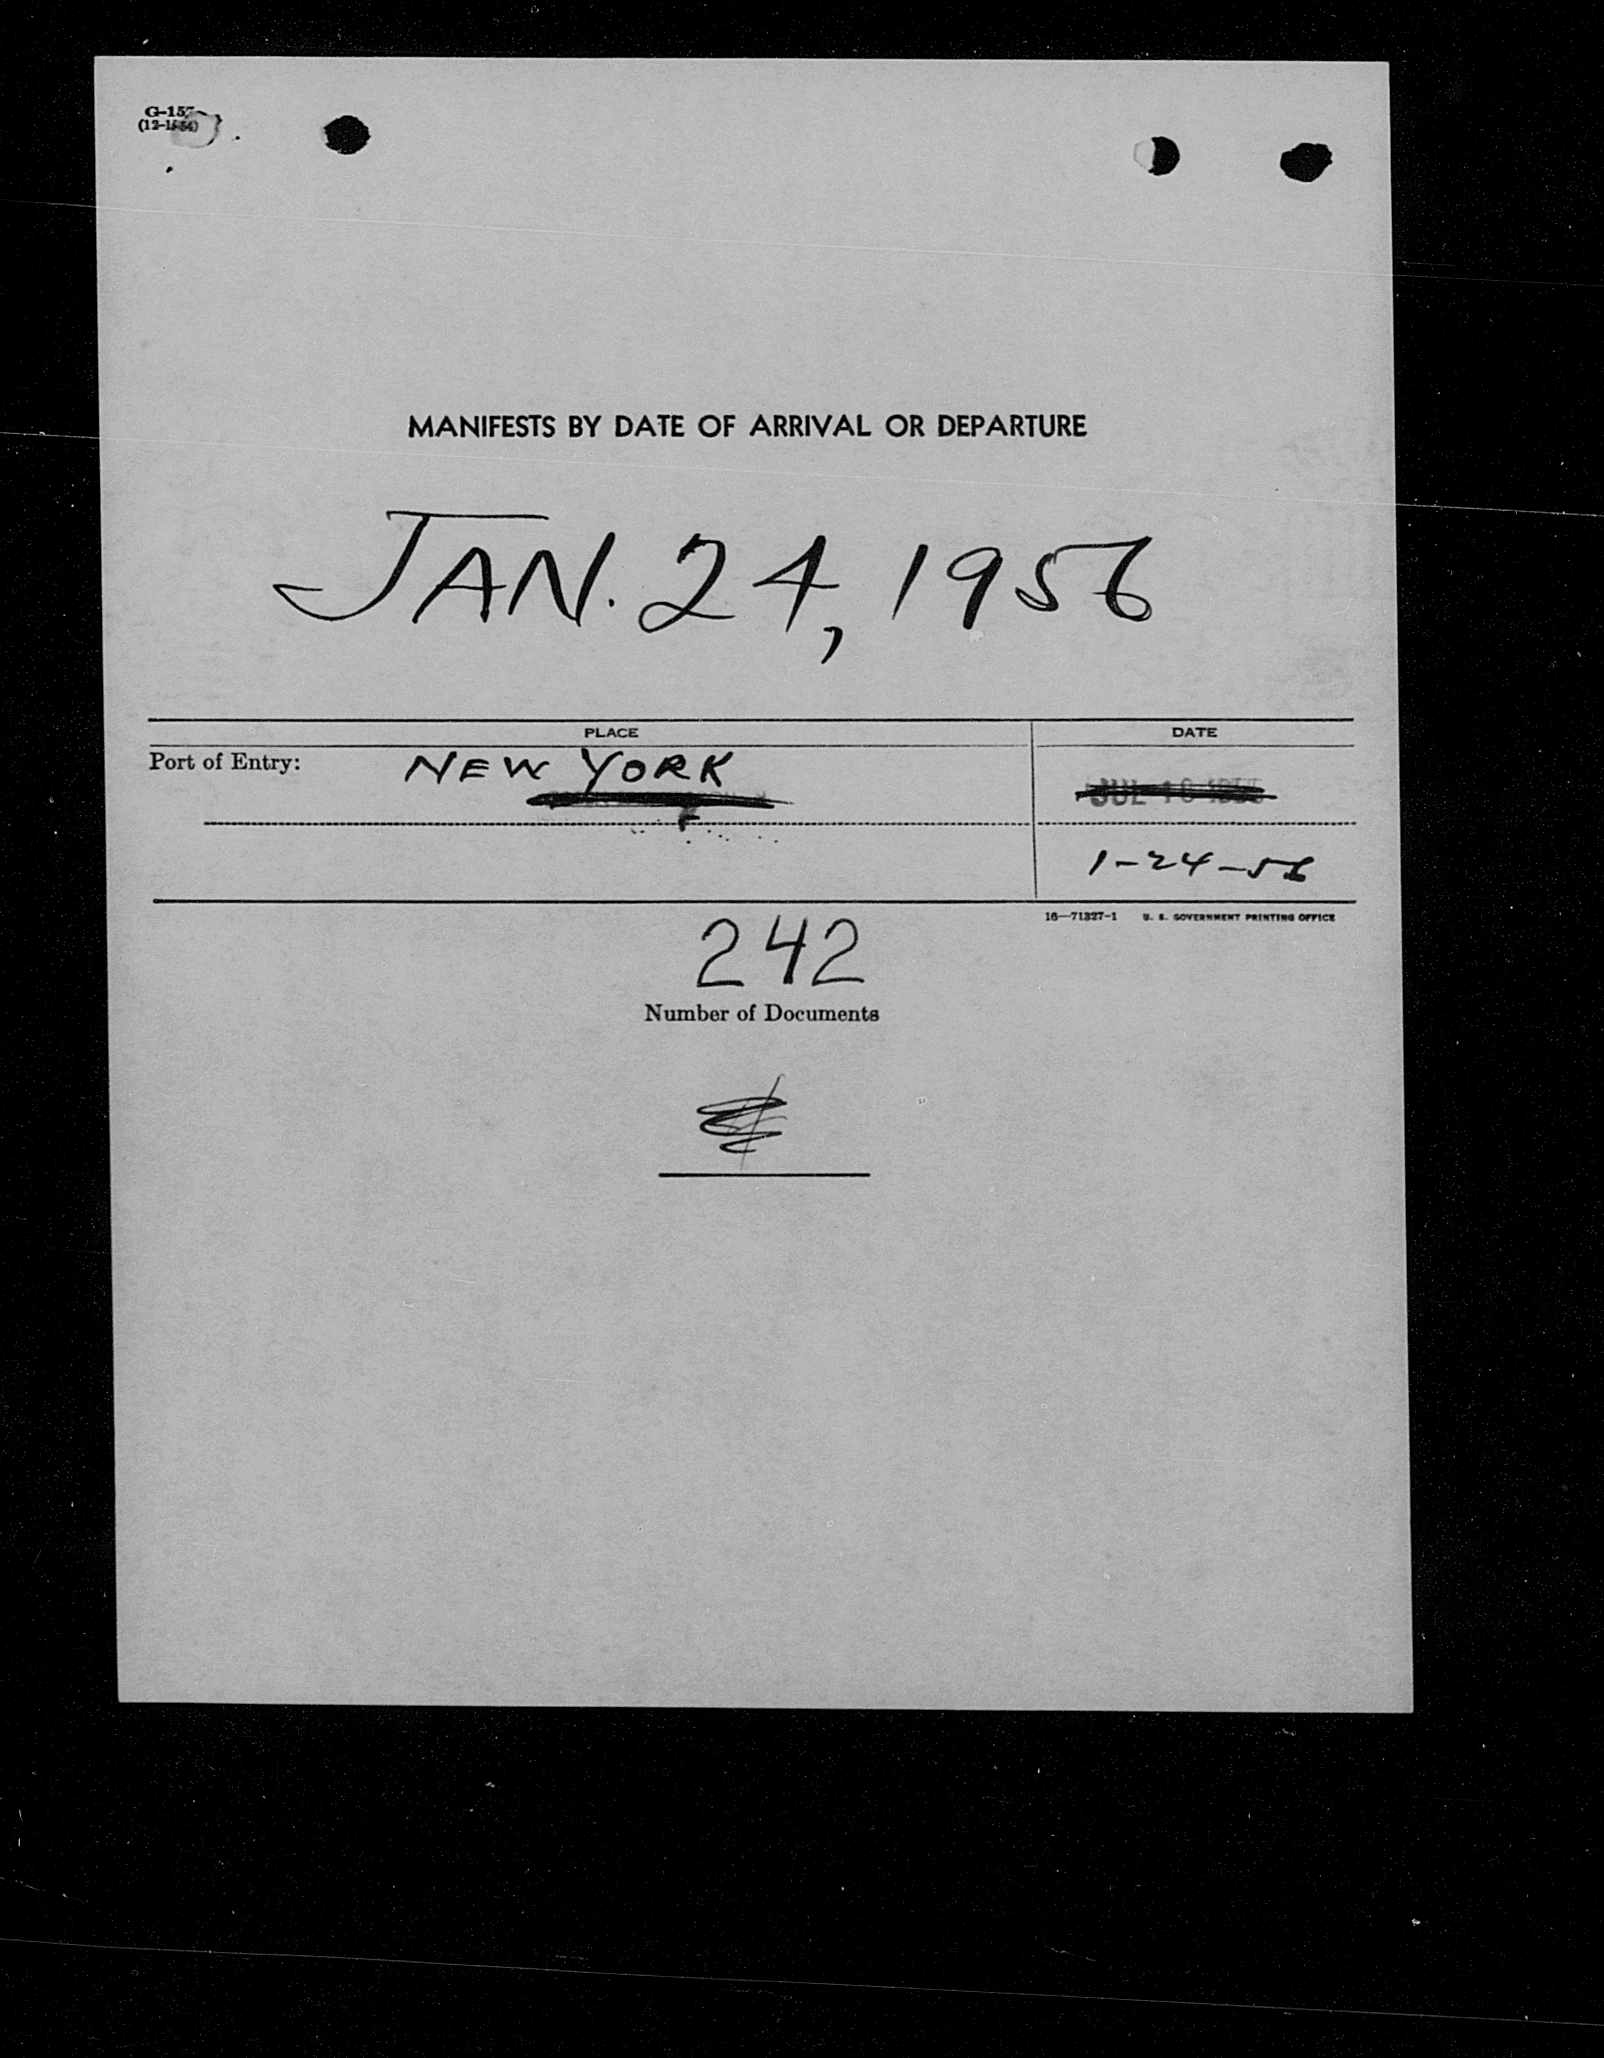 G-157
(12-15-54)
MANIFESTS BY DATE OF ARRIVAL OR DEPARTURE
JAN. 24, 1956
PLACE DATE
Port of Entry: NEW YORK
JUL 1
1-24-56
16—71327-1 U. S. GOVERNMENT PRINTING OFFICE
242
Number of Documents